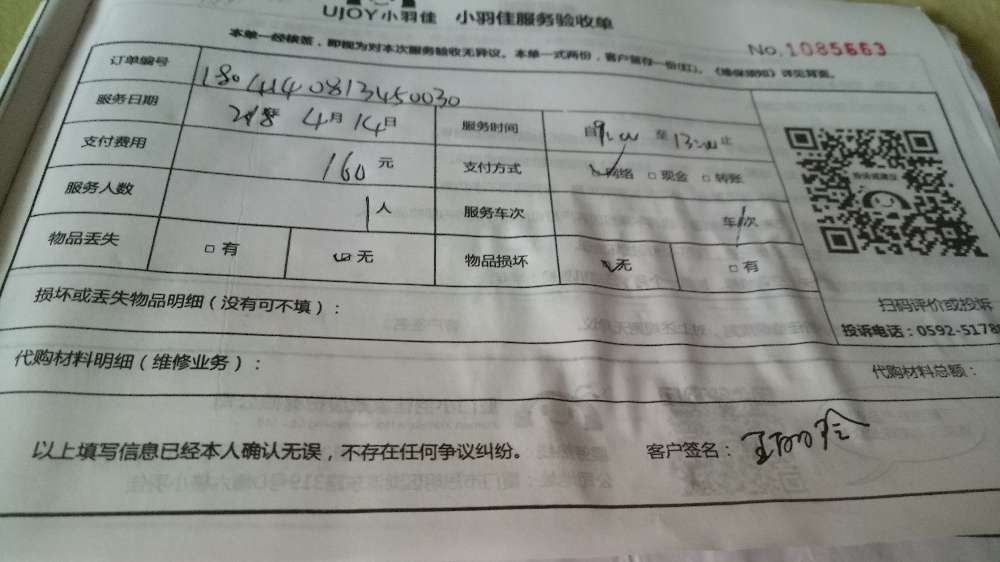 UJOY小羽佳 小羽佳服务验收单
本单一经核签，即视为对本次服务验收无异议。本单一式两份，客户留存一份(红)。《维保须知》详见背面。
No.1085663
订单编号 180414 0813450030
服务日期 2018年 4月 14日 服务时间 自9:00 至 13:00 止
支付费用 160 元 支付方式 网络 □ 现金 □ 转账
服务人数 1人 服务车次 车/次
物品丢失 □ 有 无 物品损坏 无 □ 有
损坏或丢失物品明细（没有可不填）：
扫码评价或投诉
投诉电话：0592-5178
代购材料明细（维修业务）：
代购材料总额：
以上填写信息已经本人确认无误，不存在任何争议纠纷。
客户签名：